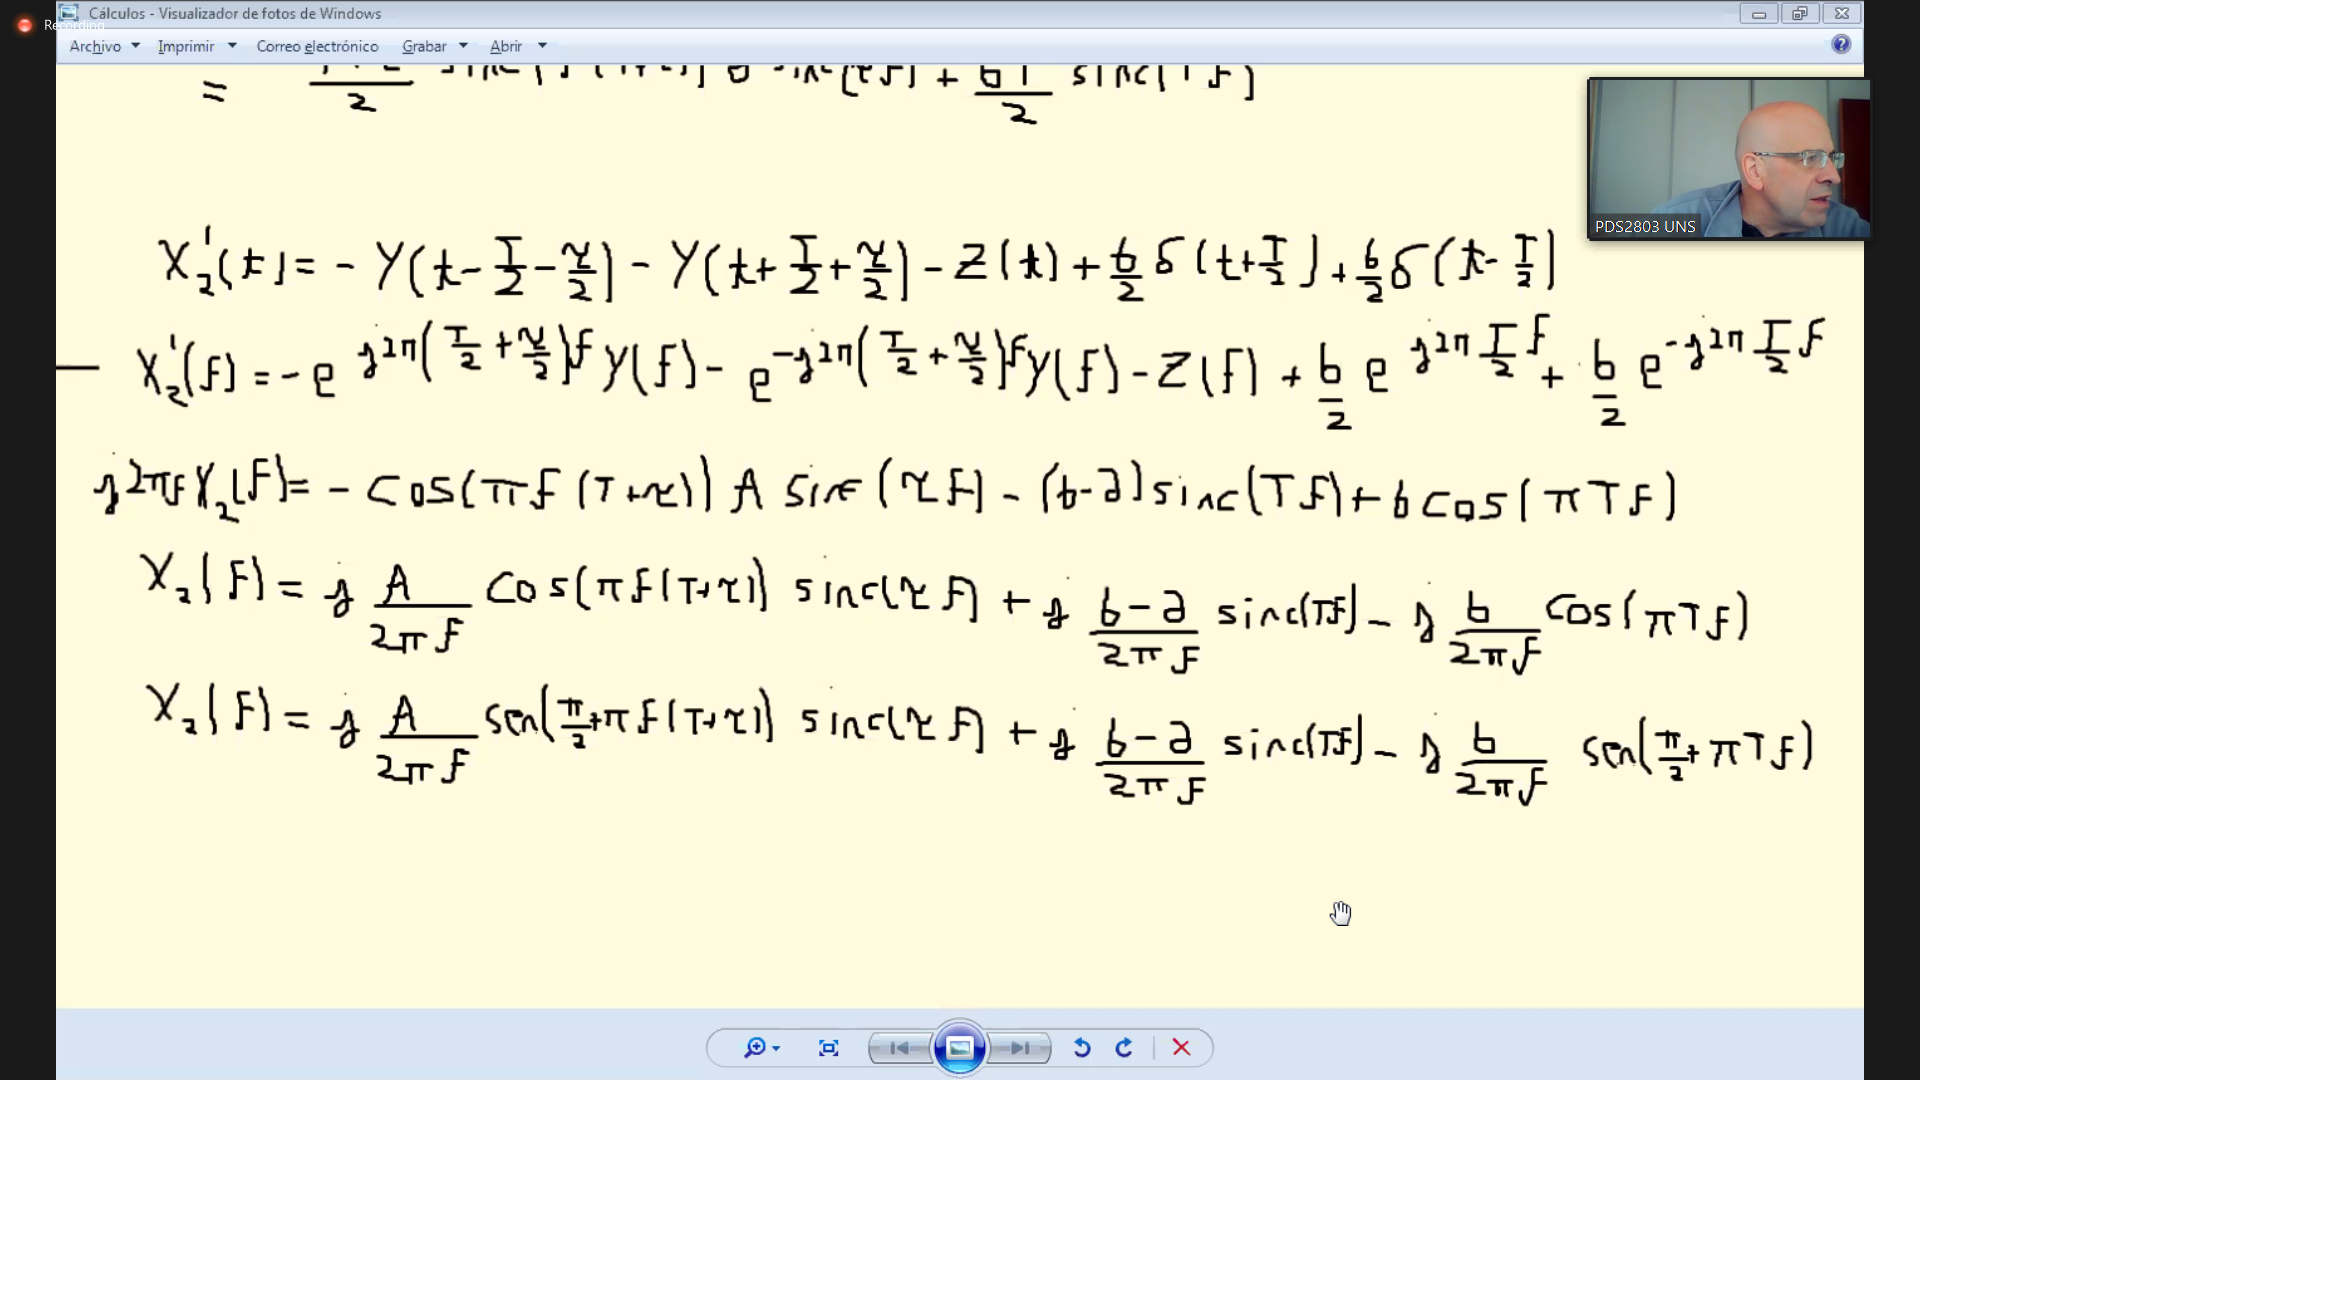 Recording
Cálculos - Visualizador de fotos de Windows
Archivo Imprimir Correo electrónico Grabar Abrir
= /2 sinc[τf] + bT/2 sinc(Tf)
PDS2803 UNS
X₂'(t) = - Y(t - T/2 - τ/2) - Y(t + T/2 + τ/2) - Z(t) + b/2 δ(t + T/2) + b/2 δ(t - T/2)
X₂'(f) = - e^{j2π(T/2 + τ/2)f} Y(f) - e^{-j2π(T/2 + τ/2)f} Y(f) - Z(f) + b/2 e^{j2π T/2 f} + b/2 e^{-j2π T/2 f}
j2πf X₂(f) = - cos(πf(T+τ)) A sinc(τf) - (b-a) sinc(Tf) + b cos(πTf)
X₂(f) = j A/2πf cos(πf(T+τ)) sinc(τf) + j b-a/2πf sinc(Tf) - j b/2πf cos(πTf)
X₂(f) = j A/2πf sen(π/2 + πf(T+τ)) sinc(τf) + j b-a/2πf sinc(Tf) - j b/2πf sen(π/2 + πTf)